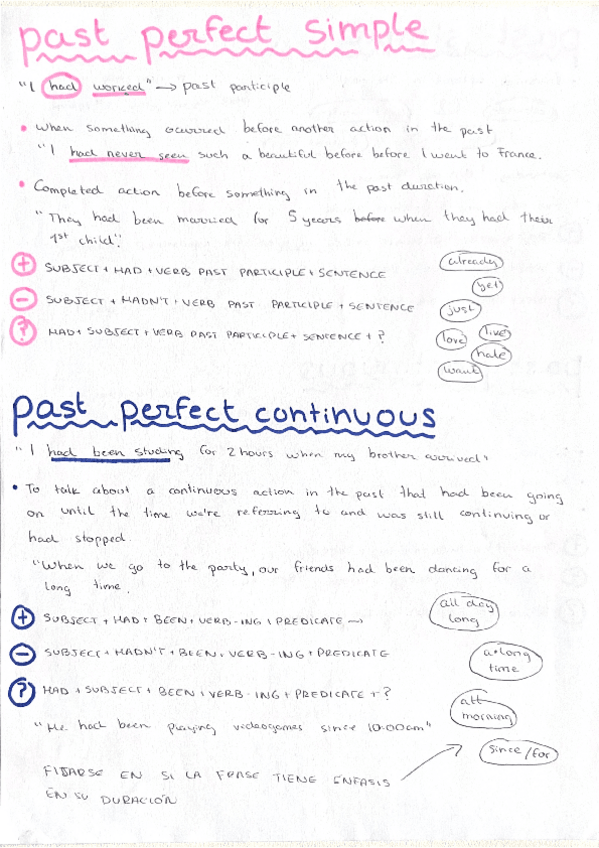 past perfect simple
"I had worked" → past participle
• When something ocurred before another action in the past
"I had never seen such a beautiful before before I went to France.
• Completed action before something in the past duration.
"They had been married for 5 years before when they had their
1st child".
+ SUBJECT + HAD + VERB PAST PARTICIPLE + SENTENCE
already
yet
- SUBJECT + HADN'T + VERB PAST PARTICIPLE + SENTENCE
just
? HAD + SUBJECT + VERB PAST PARTICIPLE + SENTENCE + ?
love
live
hate
want
past perfect continuous
"I had been studing for 2 hours when my brother arrived"
• To talk about a continuous action in the past that had been going
on until the time we're referring to and was still continuing or
had stopped.
"When we go to the party, our friends had been dancing for a
long time.
+ SUBJECT + HAD + BEEN + VERB-ING + PREDICATE →
all day
long
- SUBJECT + HADN'T + BEEN + VERB-ING + PREDICATE
a long
time
? HAD + SUBJECT + BEEN + VERB-ING + PREDICATE + ?
all
morning
"He had been playing videogames since 10:00am"
since/for
FIJARSE EN SI LA FRASE TIENE ENFASIS
EN SU DURACIÓN